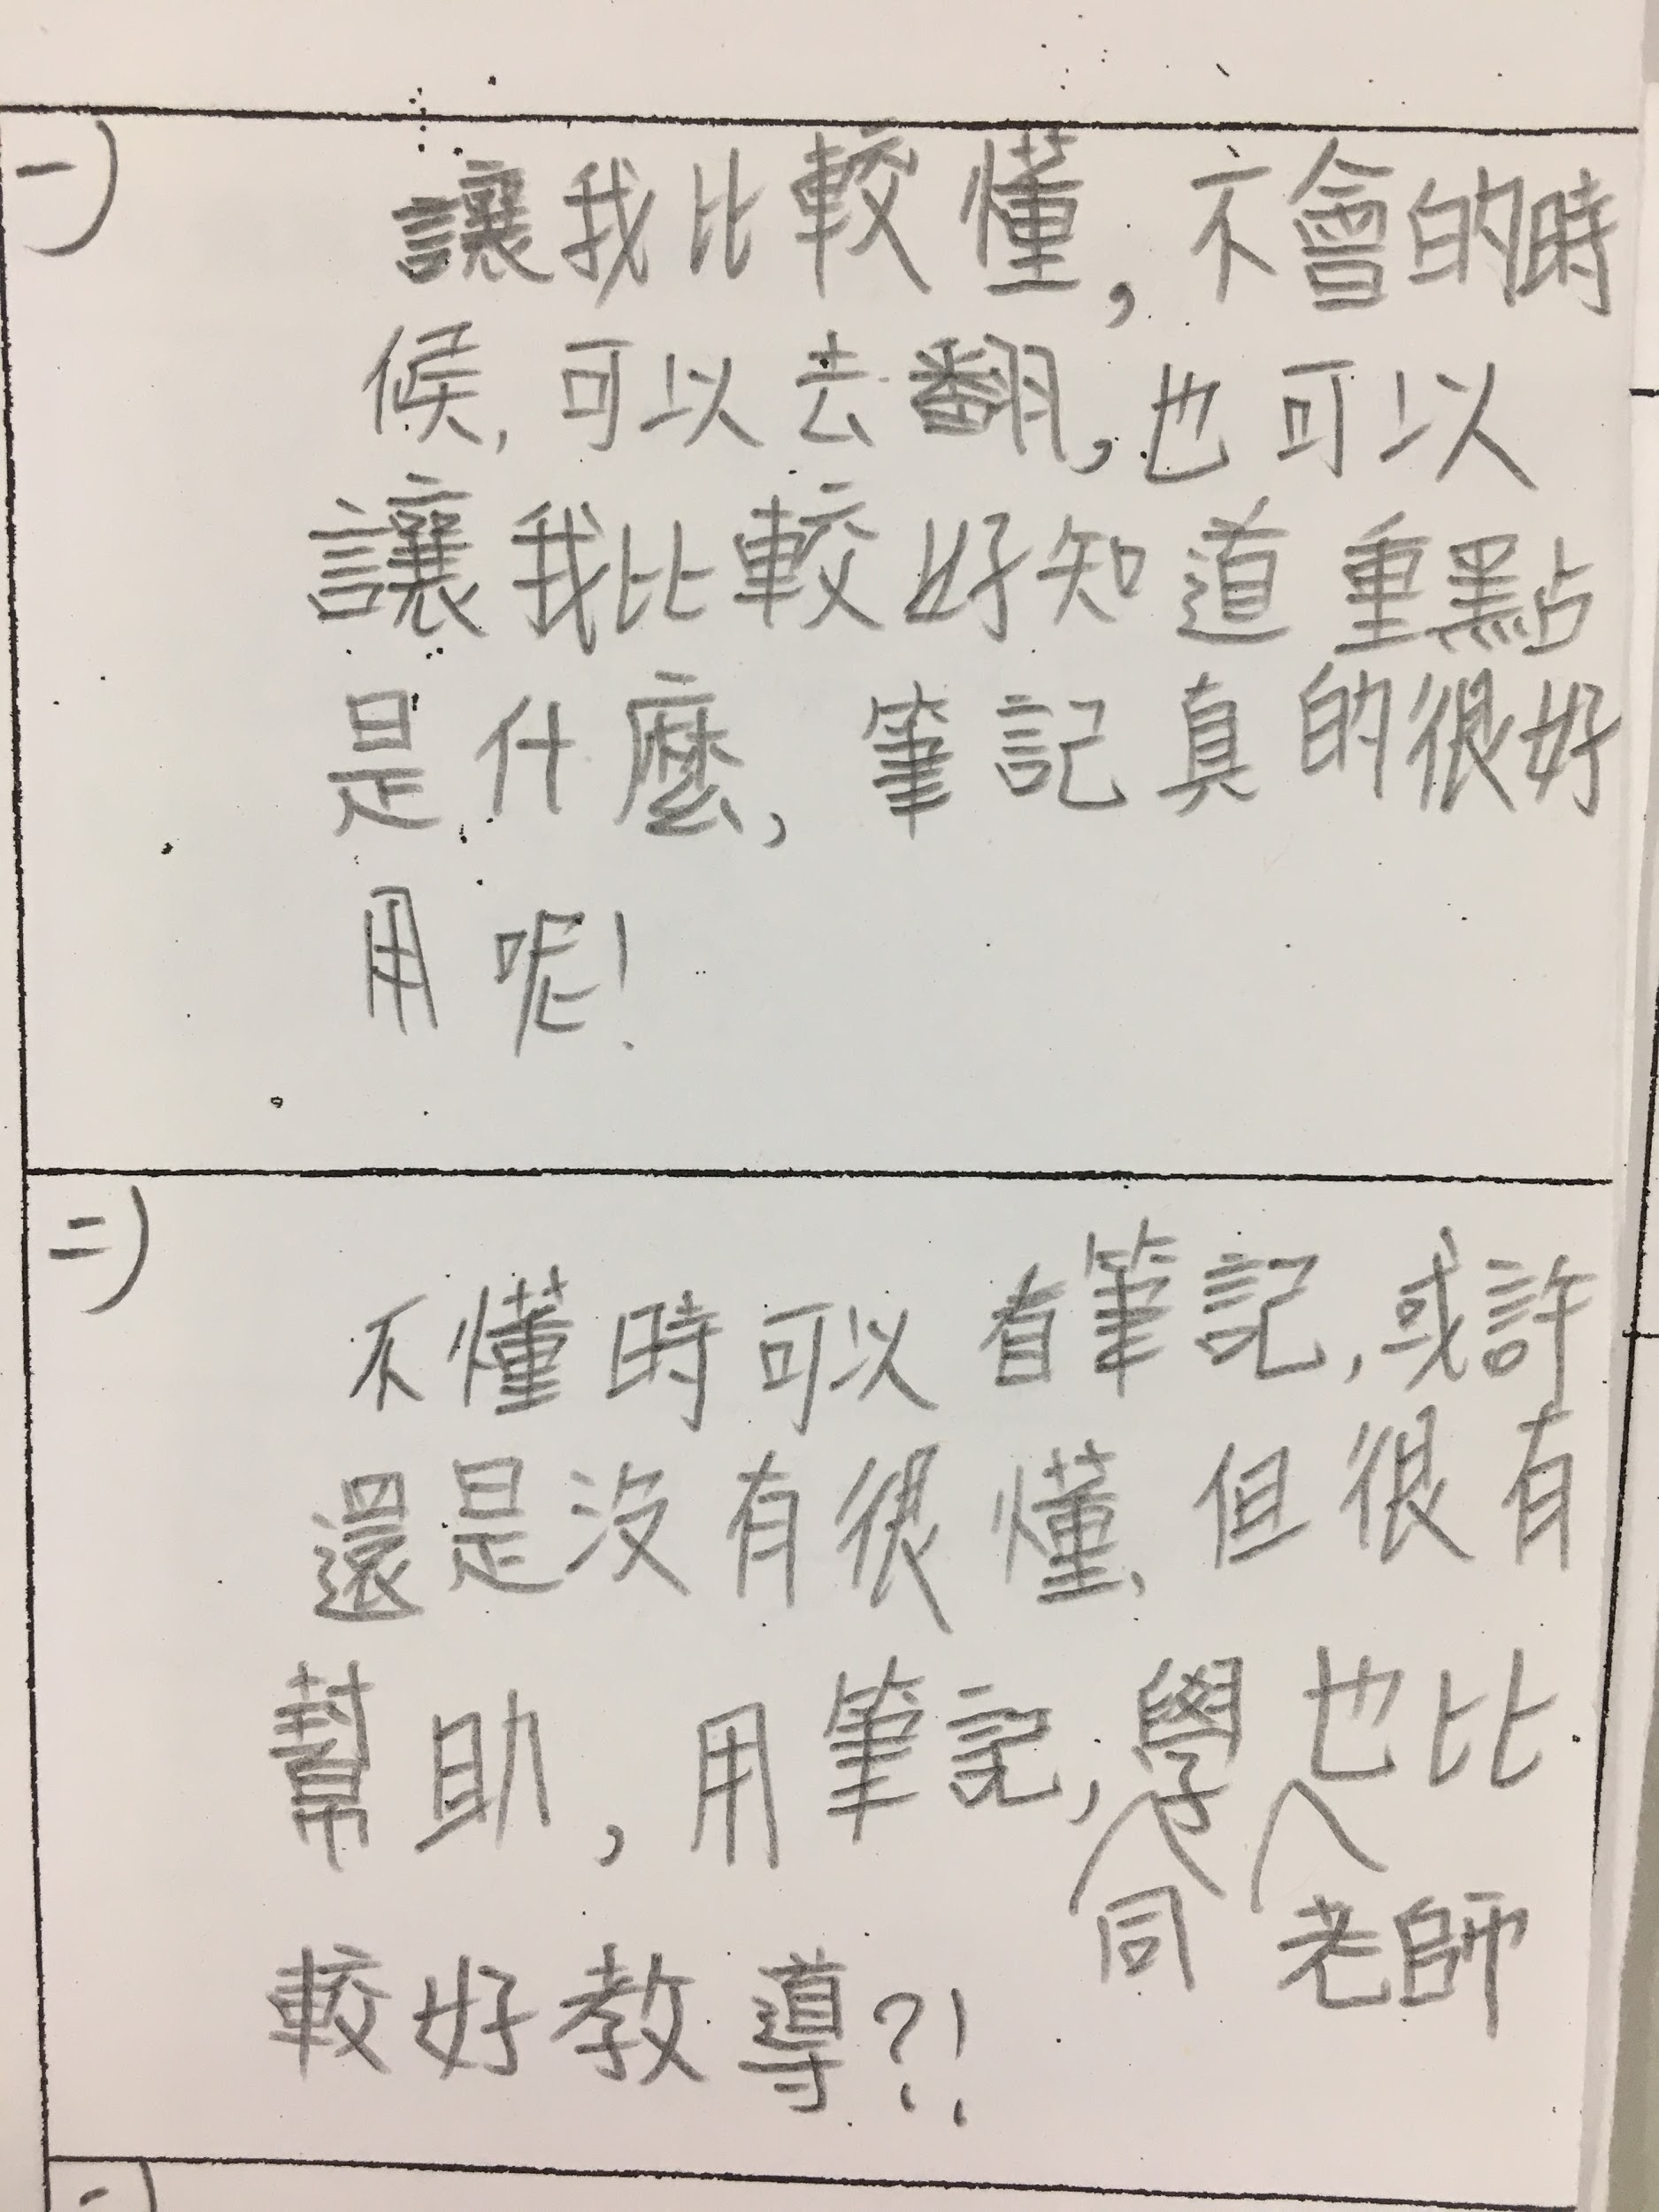 一)
讓我比較懂,不會的時
候,可以去翻,也可以
讓我比較好知道重點
是什麼,筆記真的很好
用呢!
二)
不懂時可以看筆記,或許
還是沒有很懂、但很有
幫助,用筆記,同學老師也比
較好教導?!